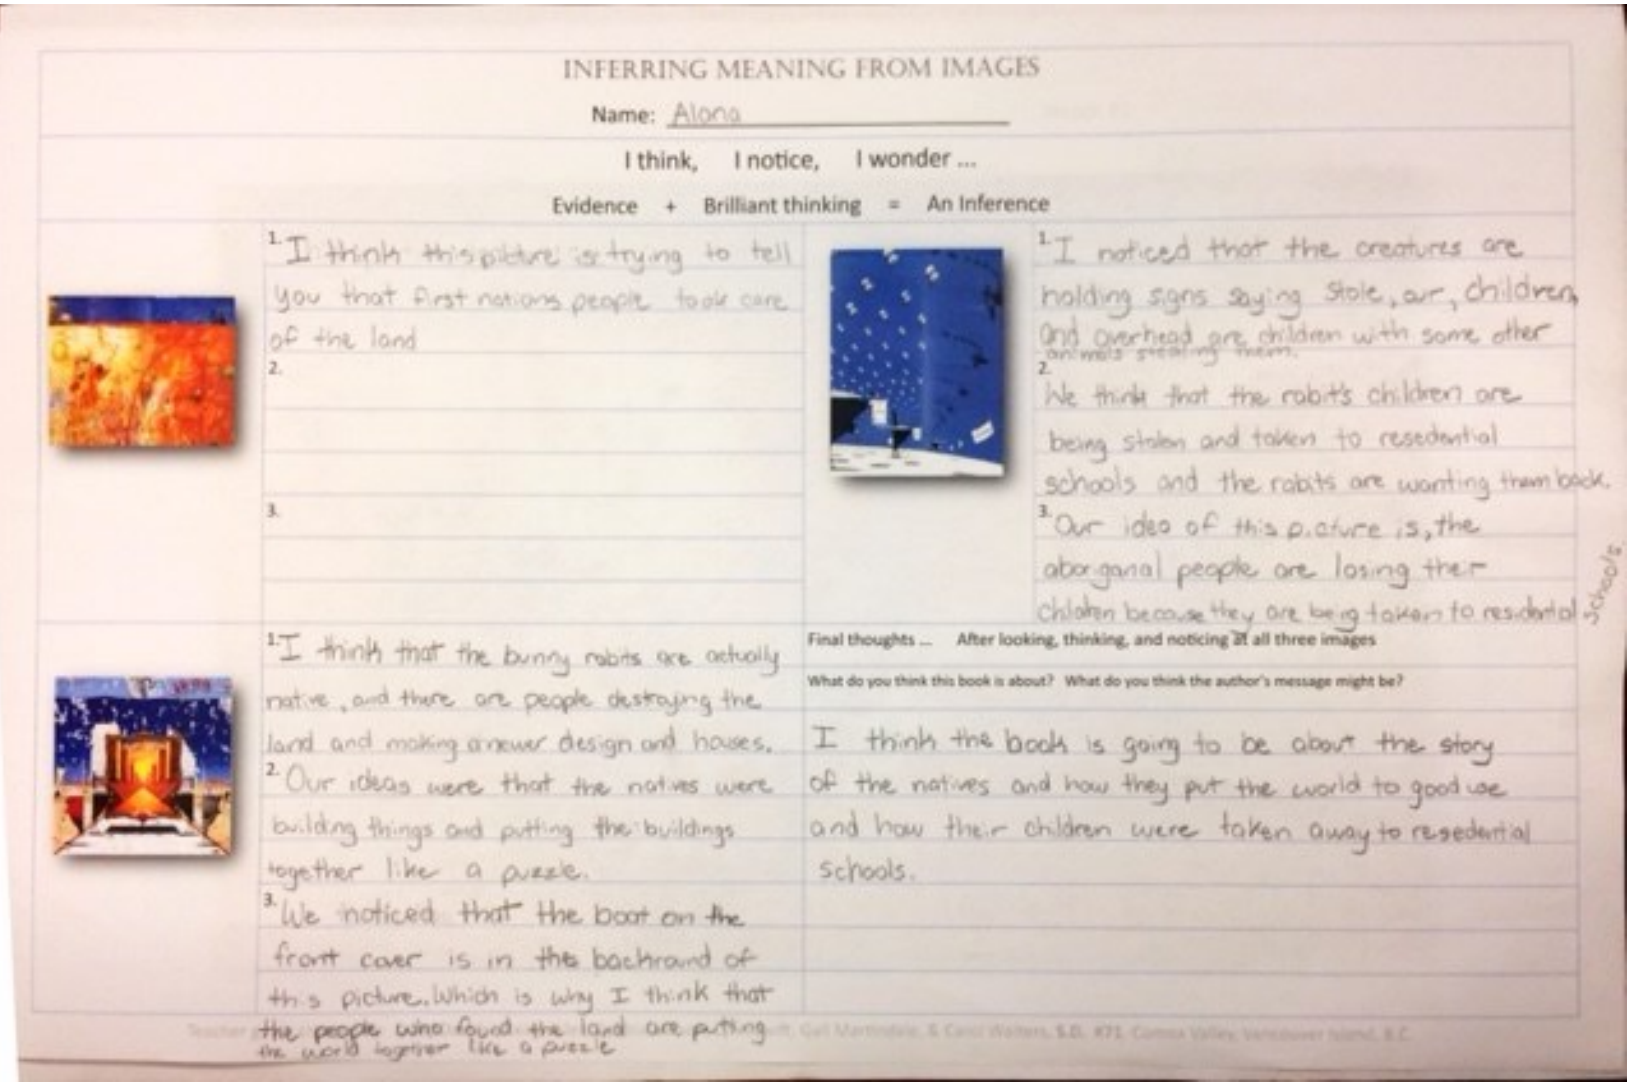 INFERRING MEANING FROM IMAGES
Name: Alona
I think, I notice, I wonder ...
Evidence + Brilliant thinking = An Inference
1. I think this picture is trying to tell
you that first nations people took care
of the land
2.
3.
1. I noticed that the creatures are
holding signs saying Stole, our, children,
and overhead are children with some other
animals stealing them.
2.
We think that the rabit's children are
being stolen and taken to resedential
schools and the rabits are wanting them back.
3. Our idea of this picture is, the
aboriganal people are losing ther
children because they are being taken to residential
schools.
1. I think that the bunny rabits are actually
native, and there are people destroying the
land and making a newer design and houses.
2. Our ideas were that the natives were
building things and putting the buildings
together like a puzzle.
3. We noticed that the boat on the
front cover is in the backround of
this picture. Which is why I think that
the people who found the land are putting
the world together like a puzzle
Final thoughts ... After looking, thinking, and noticing at all three images
What do you think this book is about? What do you think the author's message might be?
I think the book is going to be about the story
of the natives and how they put the world to good use
and how their children were taken away to resedential
schools.
Teacher Gail Martindale, & Carol Walters, S.D. #71 Comox Valley, Vancouver Island, B.C.